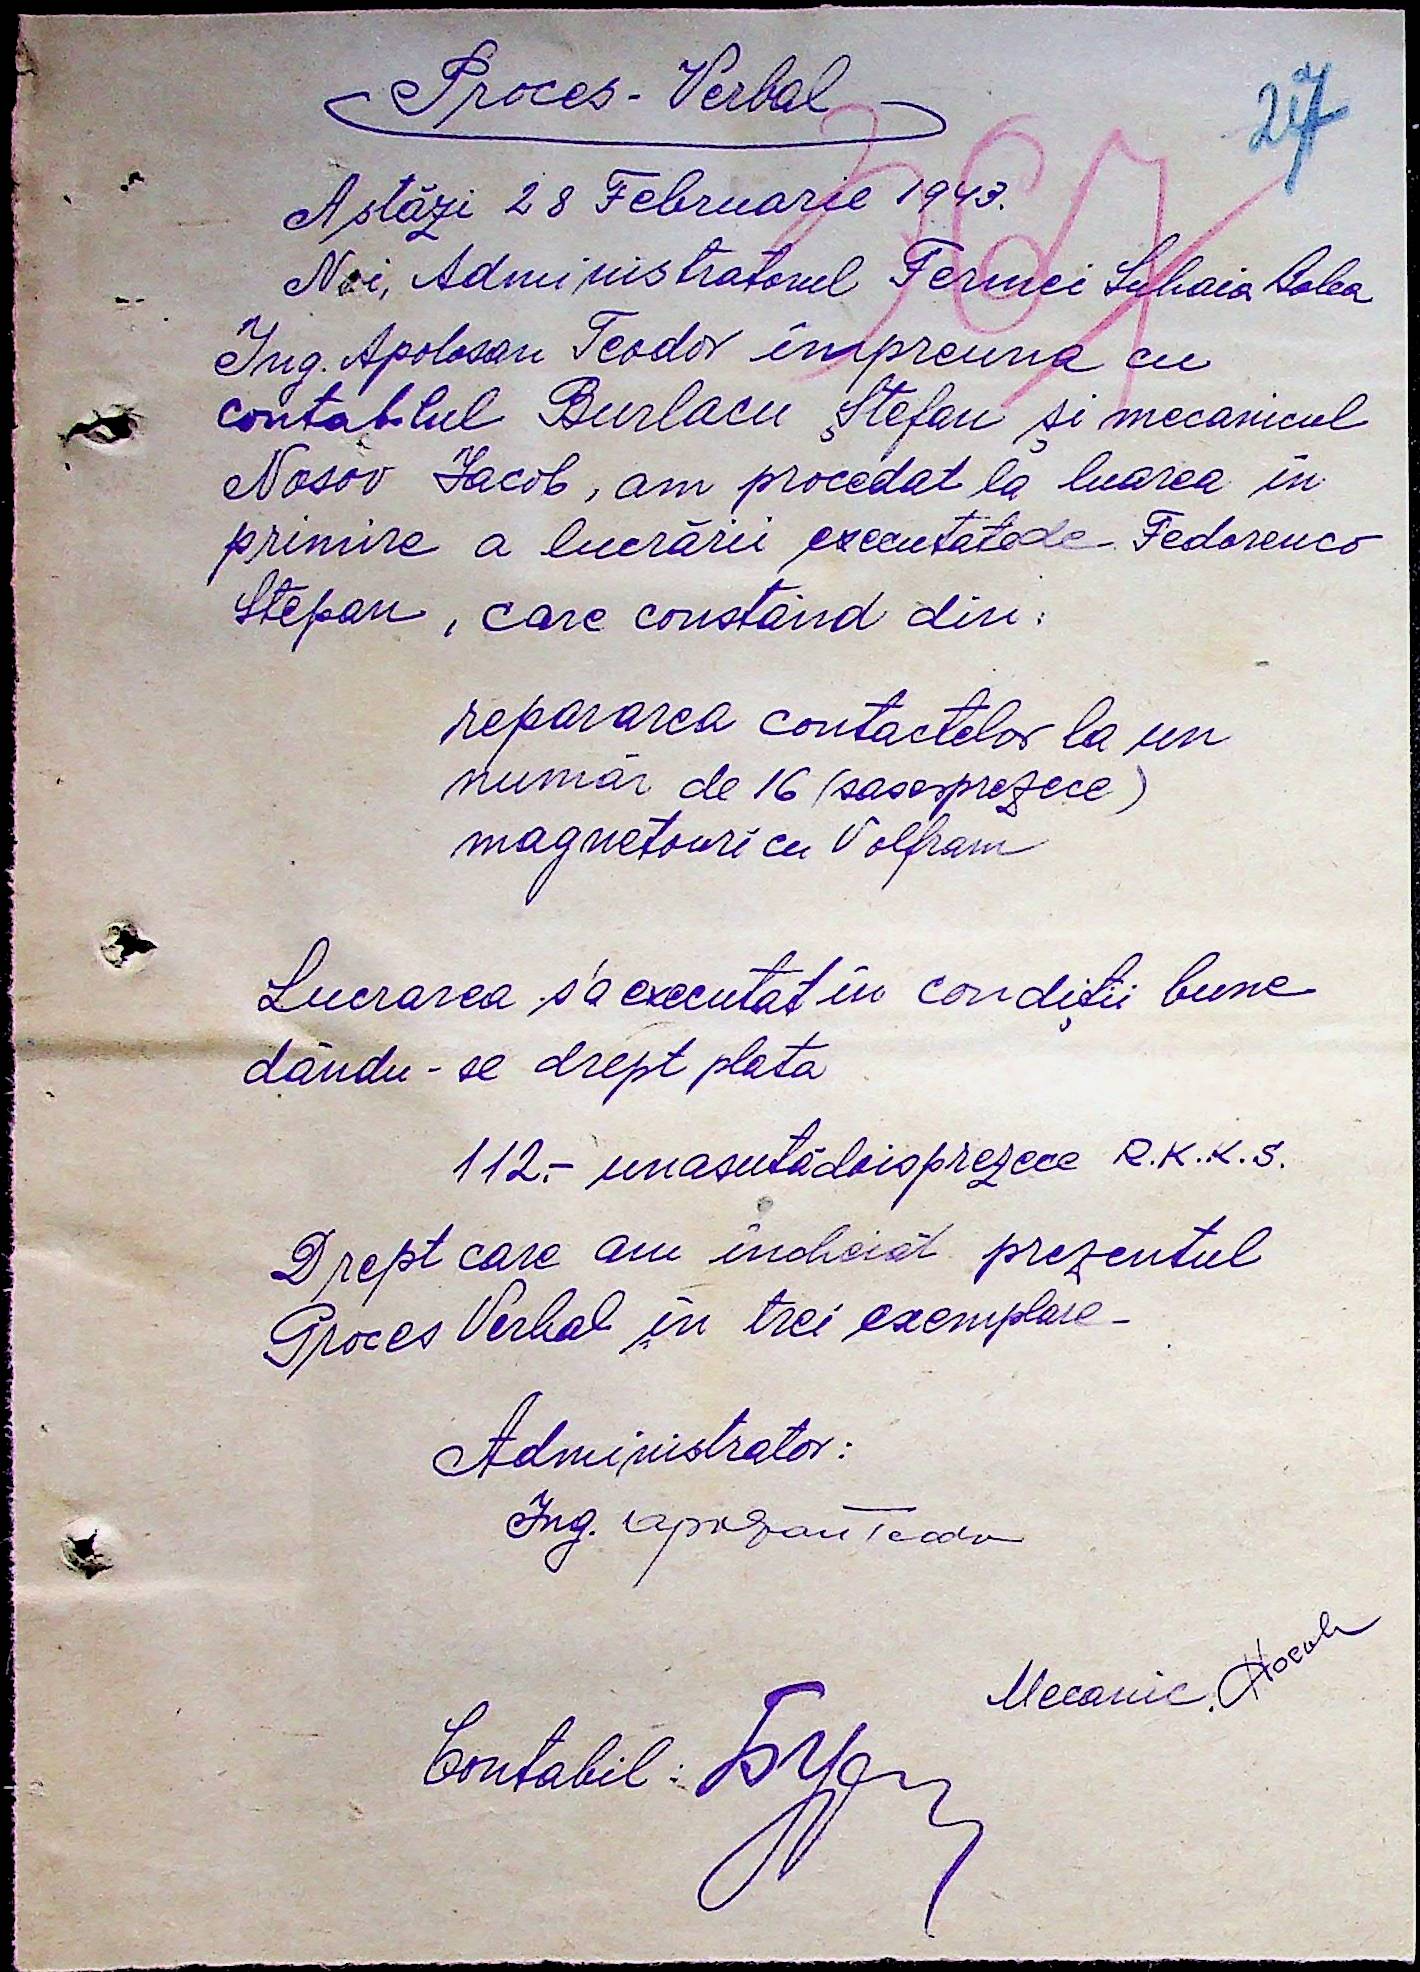 Proces-Verbal
27
367
Astăzi 28 Februarie 1943.
Noi, Administratorul Fermei Suhaia Balca
Ing. Apolosan Teodor împreuna cu
contabilul Burlacu Ștefan și mecanicul
Nosov Iacob, am procedat la luarea în
primire a lucrării executate de Fedorenco
Stepan, care constând din:
repararea contactelor la un
număr de 16 (sasesprezece)
magnetouri cu Volfram
Lucrarea s'a executat în condiții bune
dându-se drept plata
112.- unasutădoisprezece R.K.K.S.
Drept care am încheiat prezentul
Proces Verbal în trei exemplare-
Administrator:
Ing. Apolosan Teodor
Mecanic.
Contabil: